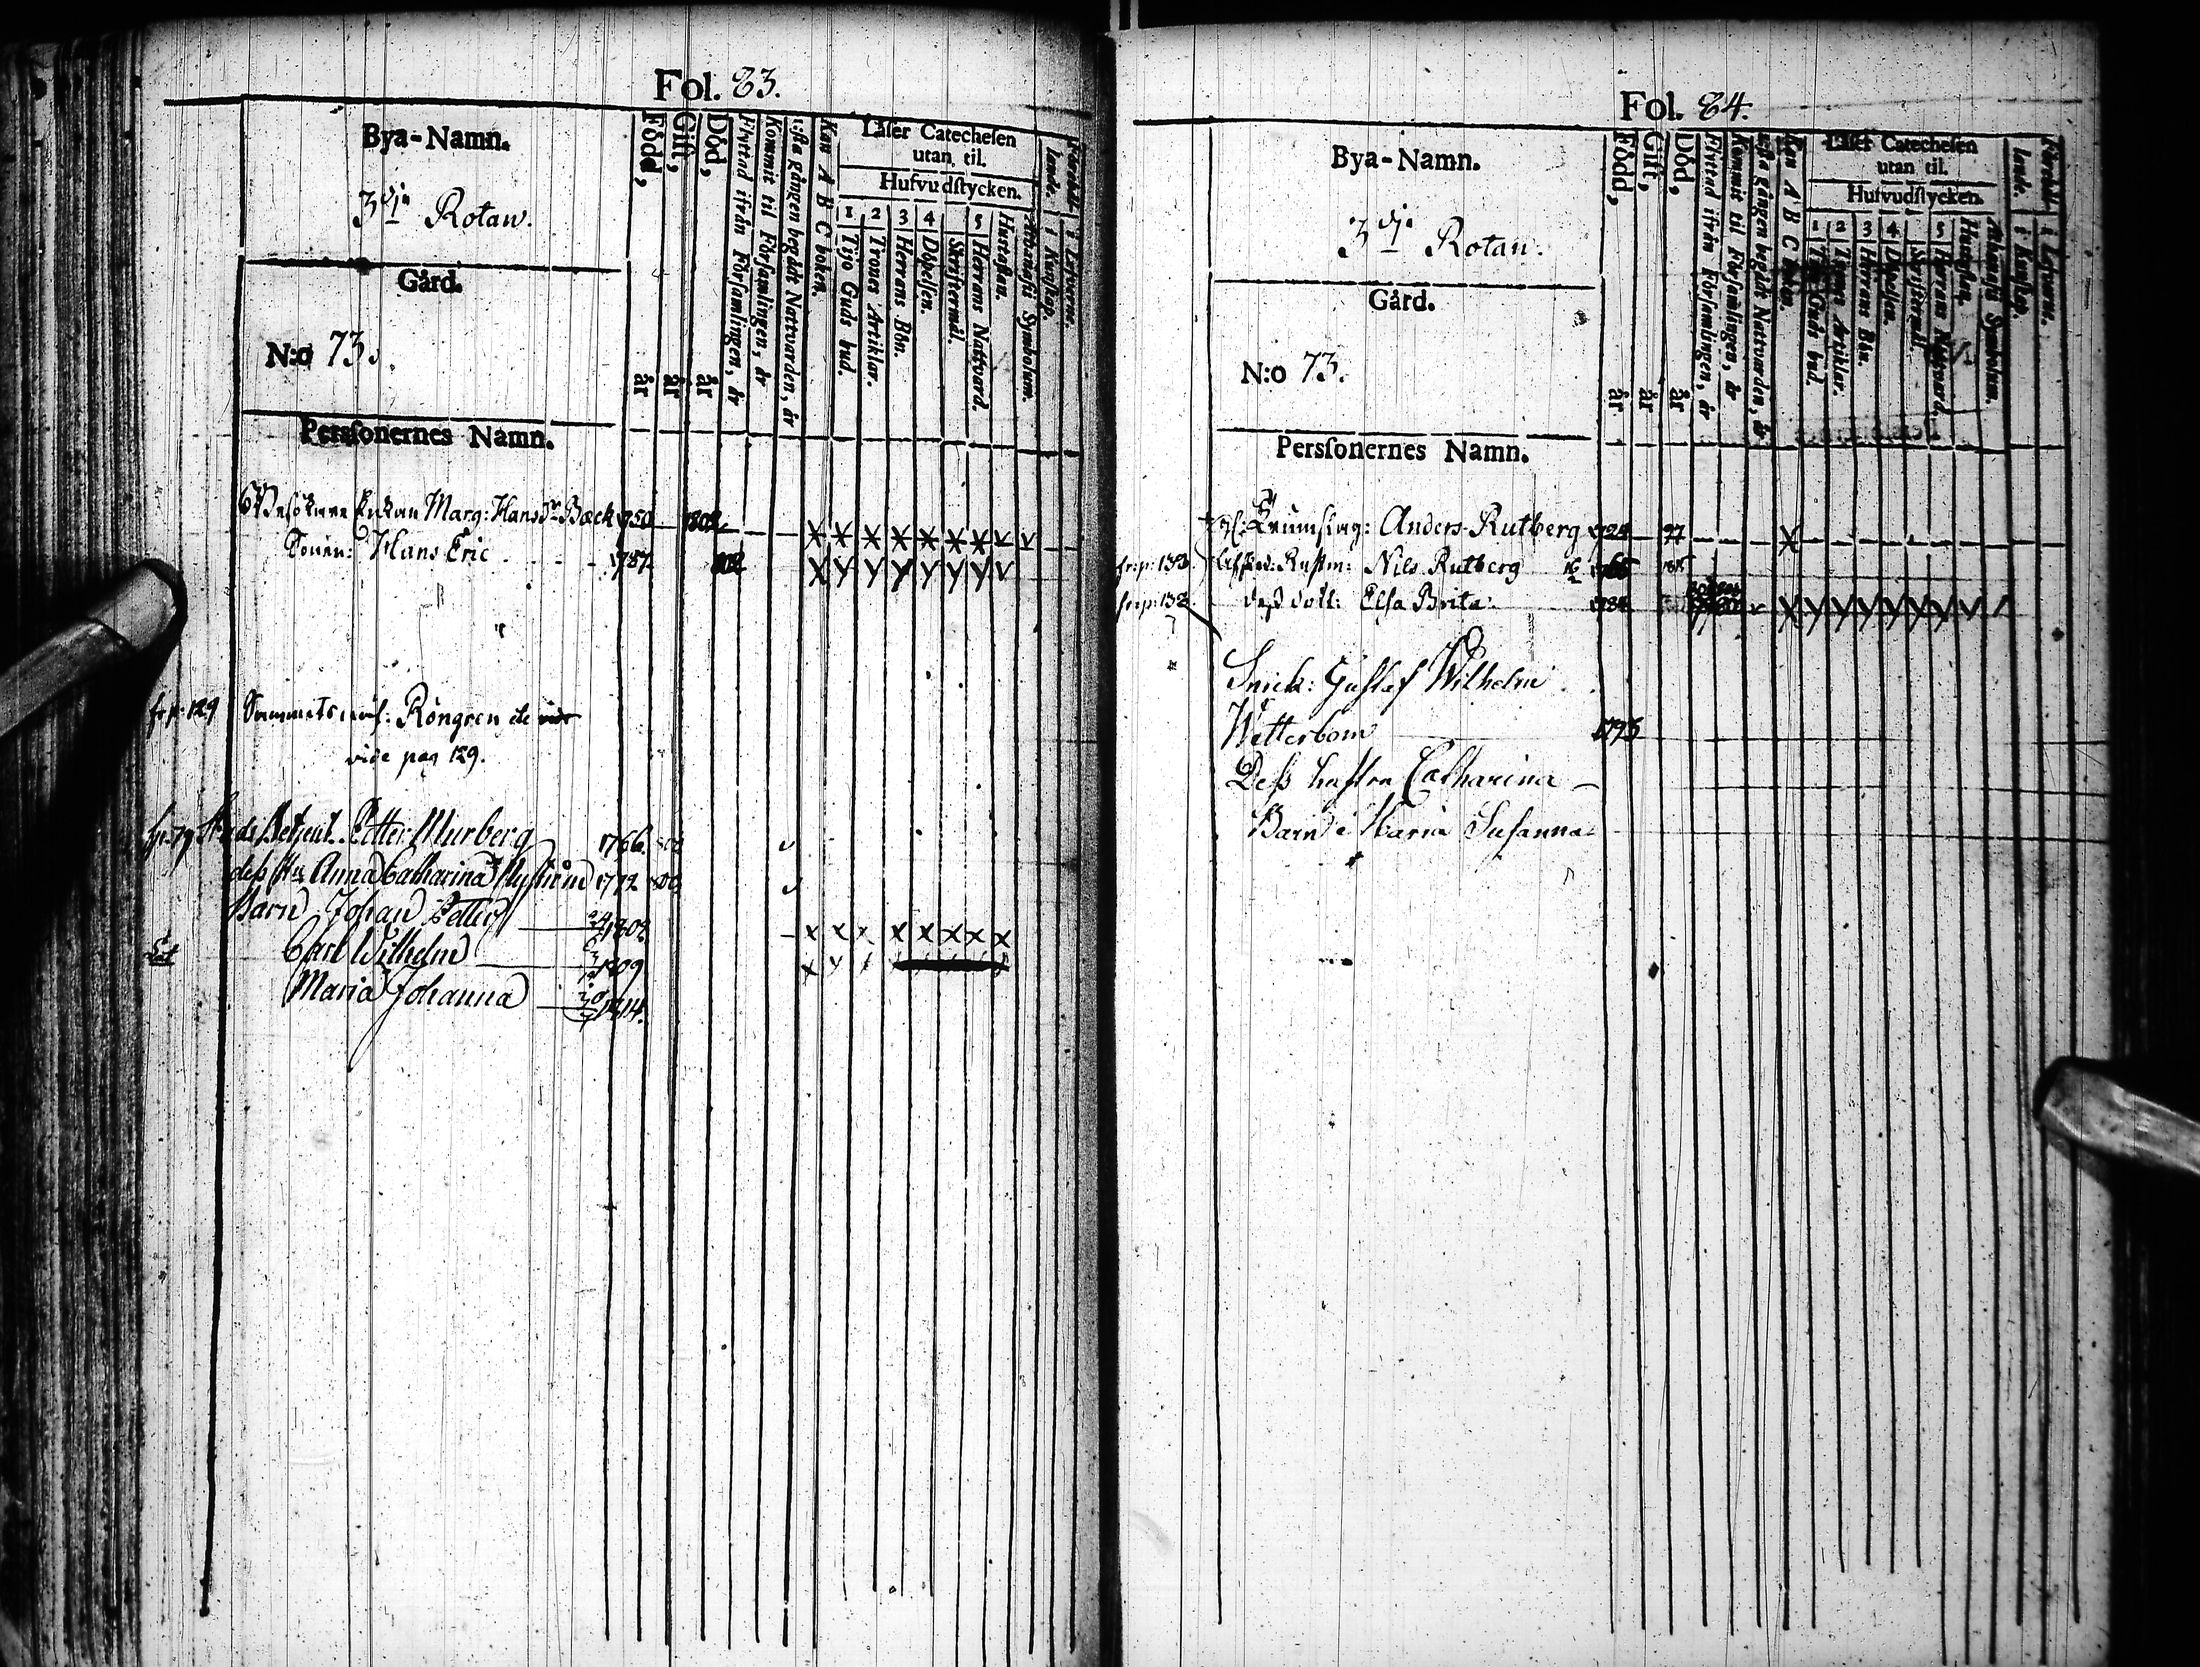 Fol. 83.
Bya-Namn.
3dje Rotan.
Gård.
N:o 73.
Persſonernes Namn.
Född, år
Gift, år
Död, år
Flyttad ifrån Förſamlingen, år
Kommit til Förſamlingen, år
1:ſta gången begådt Nattvarden, år
Kan A B C boken.
Läſer Catecheſen
utan til.
Hufvudſtycken.
1 Tijo Guds bud.
2 Trones Artiklar.
3 Herrans Bön.
4 Döpelſen.
Skriftermål.
5 Herrans Nattvard.
Huſtaflan.
Athanaſii Symbolum.
Förehållande.
i Kunſkap.
i Lefverne.
Marg: Hansdr Bæck 1750 1802
Sonen: Hans Eric 1787
fr p: 129 Röngren
vide pag 129.
Petter Murberg 1766.
deſs H:u Anna Catharina 1772
Barn Johan Petter 1802
Carl Wilhelm 1809
Maria Johanna 1814.
Fol. 84.
Bya-Namn.
3dje Rotan.
Gård.
N:o 73.
Persſonernes Namn.
Född, år
Gift, år
Död, år
Flyttad ifrån Förſamlingen, år
Kommit til Förſamlingen, år
1:ſta gången begådt Nattvarden, år
Kan A B C boken.
Läſer Catecheſen
utan til.
Hufvudſtycken.
1 Tijo Guds bud.
2 Trones Artiklar.
3 Herrans Bön.
4 Döpelſen.
Skriftermål.
5 Herrans Nattvard.
Huſtaflan.
Athanaſii Symbolum.
Förehållande.
i Kunſkap.
i Lefverne.
Anders Rutberg 1724 97
fr p: 138 Nils Rutberg
fr p: 138 deß dott: Elsa Brita 1784
Snick: Guſtaf Wilhelm
Wetterbom 1795
Deſs huſtru Catharina
Barn Maria Suſanna